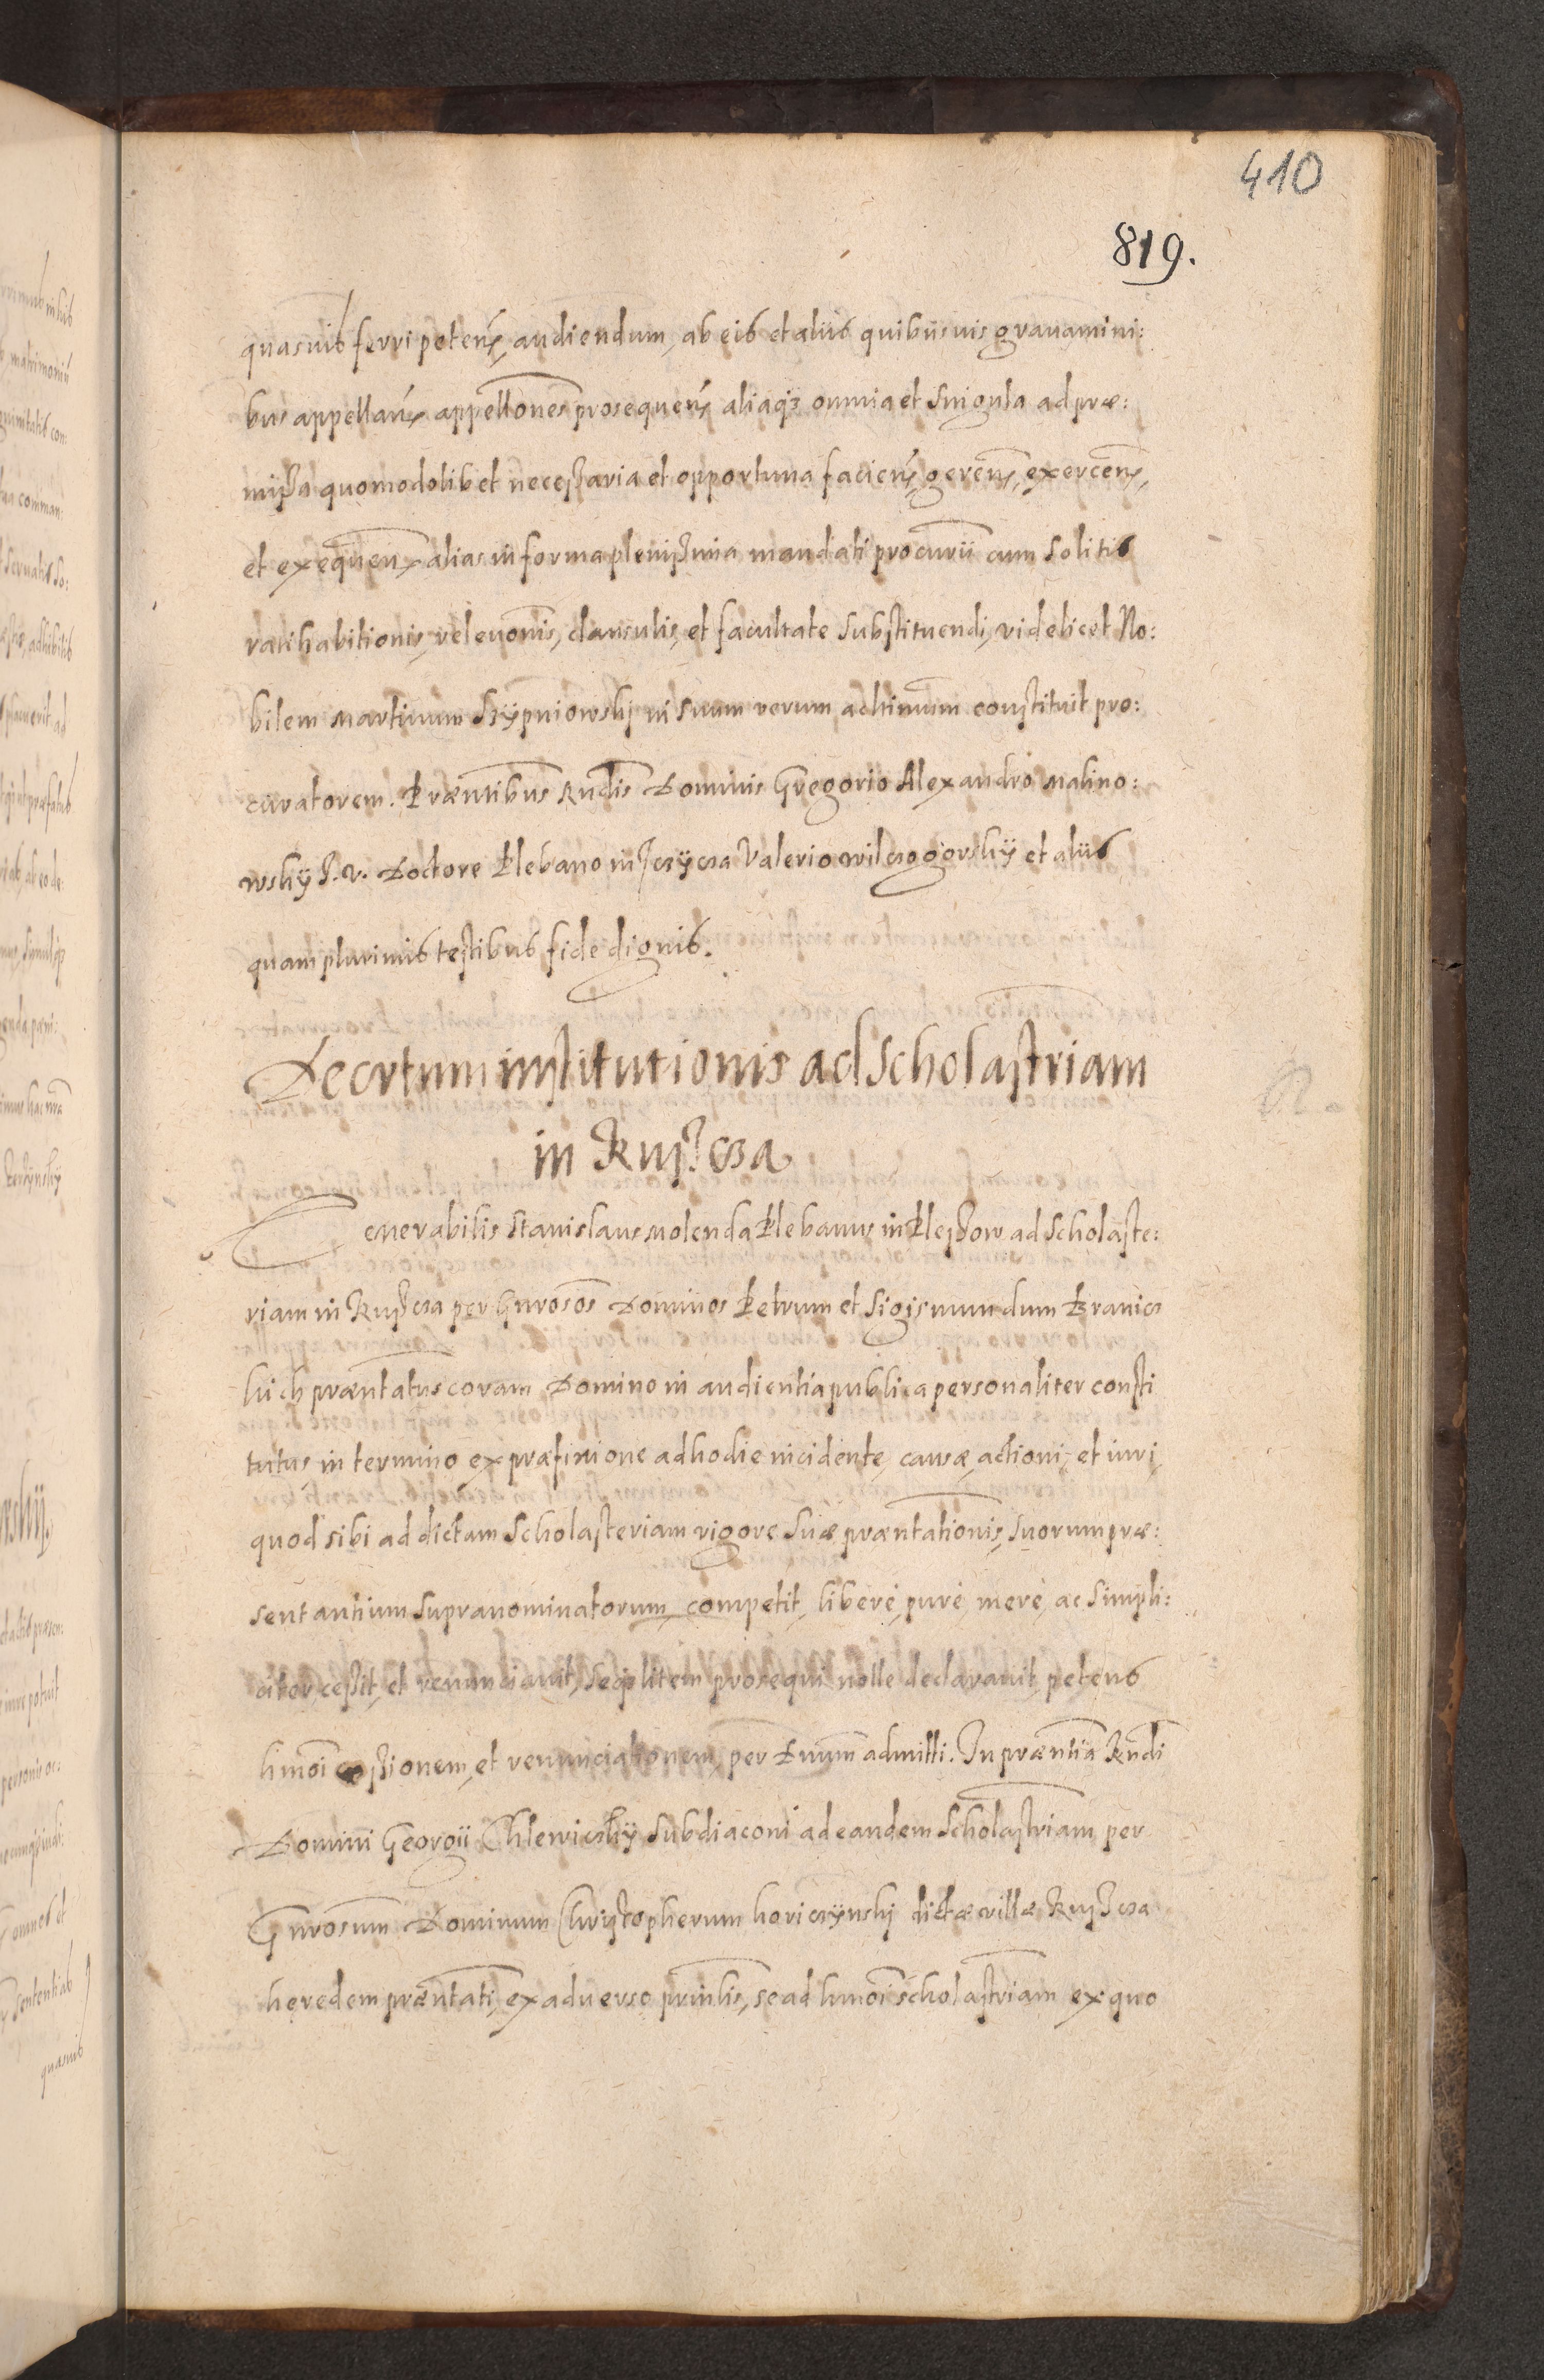 410
819.
quasvis ferri petens, audiendum, ab eis et aliis quibusuis grauamini:
bus appellans appellones prosequens aliaq3 omnia et singula ad præ:
missa quomodolibet necessaria et opportuna faciens, gerens, exercens,
et exequens alias in forma plenissima mandati procurii cum solitis
ratihabitionis, relevonis, clausulis, et facultate substituendi, videlicet No:
bilem Martinum Szÿpniowskj in suum verum achtimum constituit pro:
curatorem. Præntibus Rndis Dominis Gregorio Alexandro Malino:
wskÿ J. V. Doctore Plebano in Jczÿcza Valerio Wilczogorskÿ et aliis
quamplurimis testibus fide dignis.
Decrtum institutionis ad Scholastriam
in Kuiscza
Venerabilis Stanislaus Molenda Plebanus in Plessow ad Scholaste:
riam in Ruscza per Gnrosos Dominos Petrum et Sigismundum Branicz
kich præntatus coram Domino in audientia publica personaliter consti
tutus in termino ex præfinione ad hodie incidente, causæ, actioni, et iuri
quod sibi ad dictam Scholasteriam vigore suæ præntationis, suorum præ:
sentantium supranominatorum, competit, libere, pure, mere, ac simpli:
citer, cessit, et renunciauit, seq3 litem prosequi nolle declarauit, petens
hmoi cessionem, et renunciationem, per Dnum admitti. In præntia Rndi
Domini Georgii Chlewiczkÿ Subdiaconi ad eandem Scholastriam per
Gnrosum Dominum Christopherum koriczÿnskj dictæ villæ Ruscza
heredem præntati, ex aduerso prinlis, se ad hmoi scholastriam ex quo